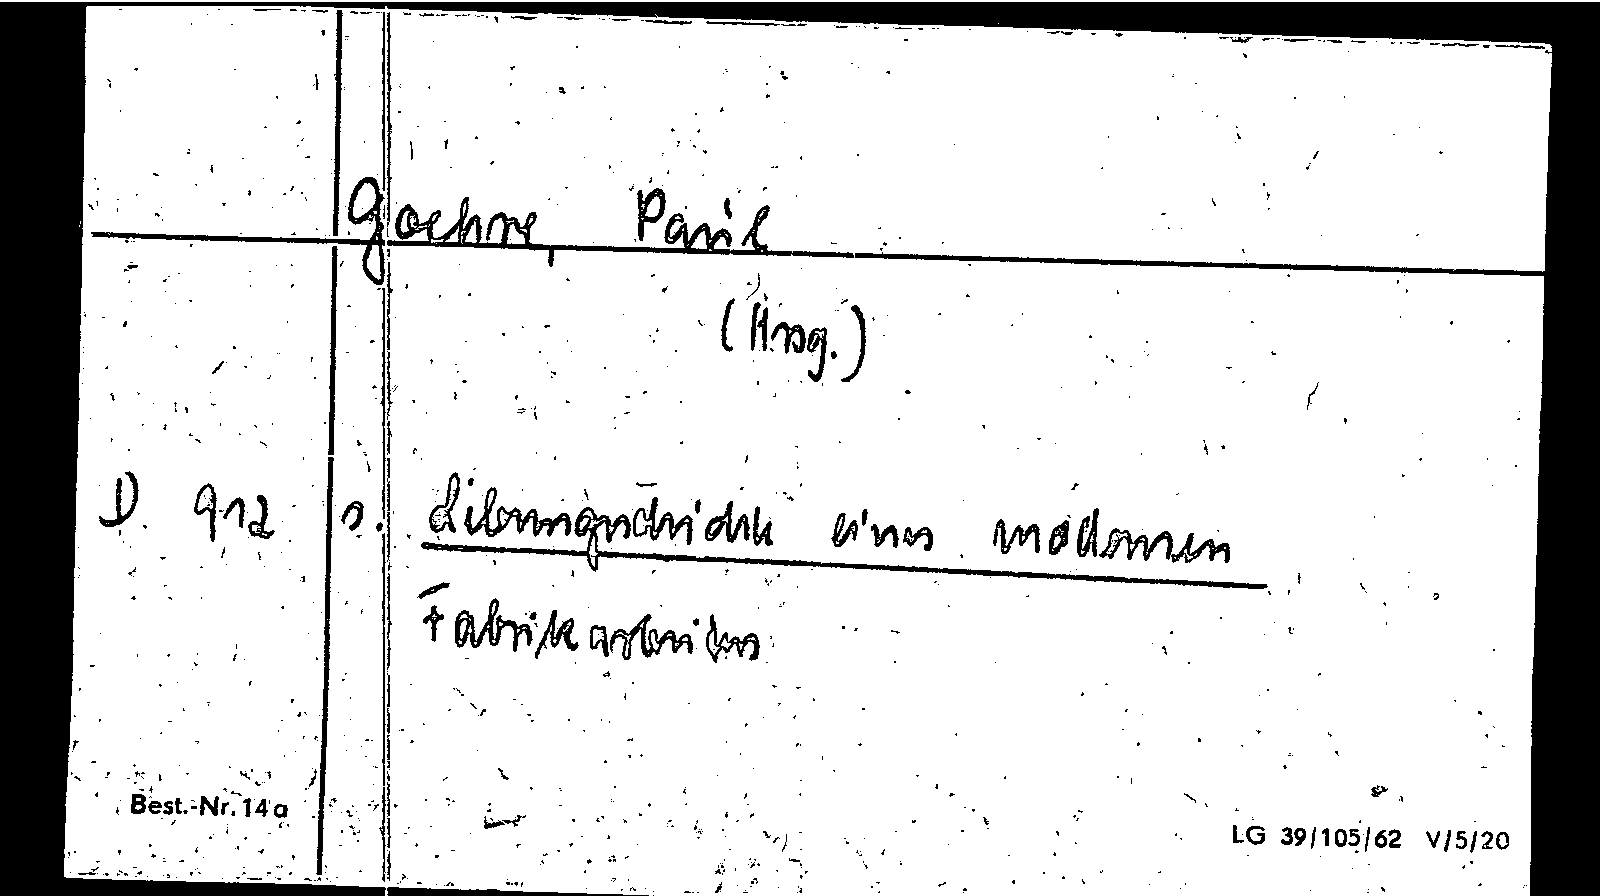 Goehre, Paul
(Hrsg.)
D. 912 s. Lebensgeschichte eines modernen
Fabrikarbeiters
Best.-Nr. 14a
LG 39/105/62 V/5/20